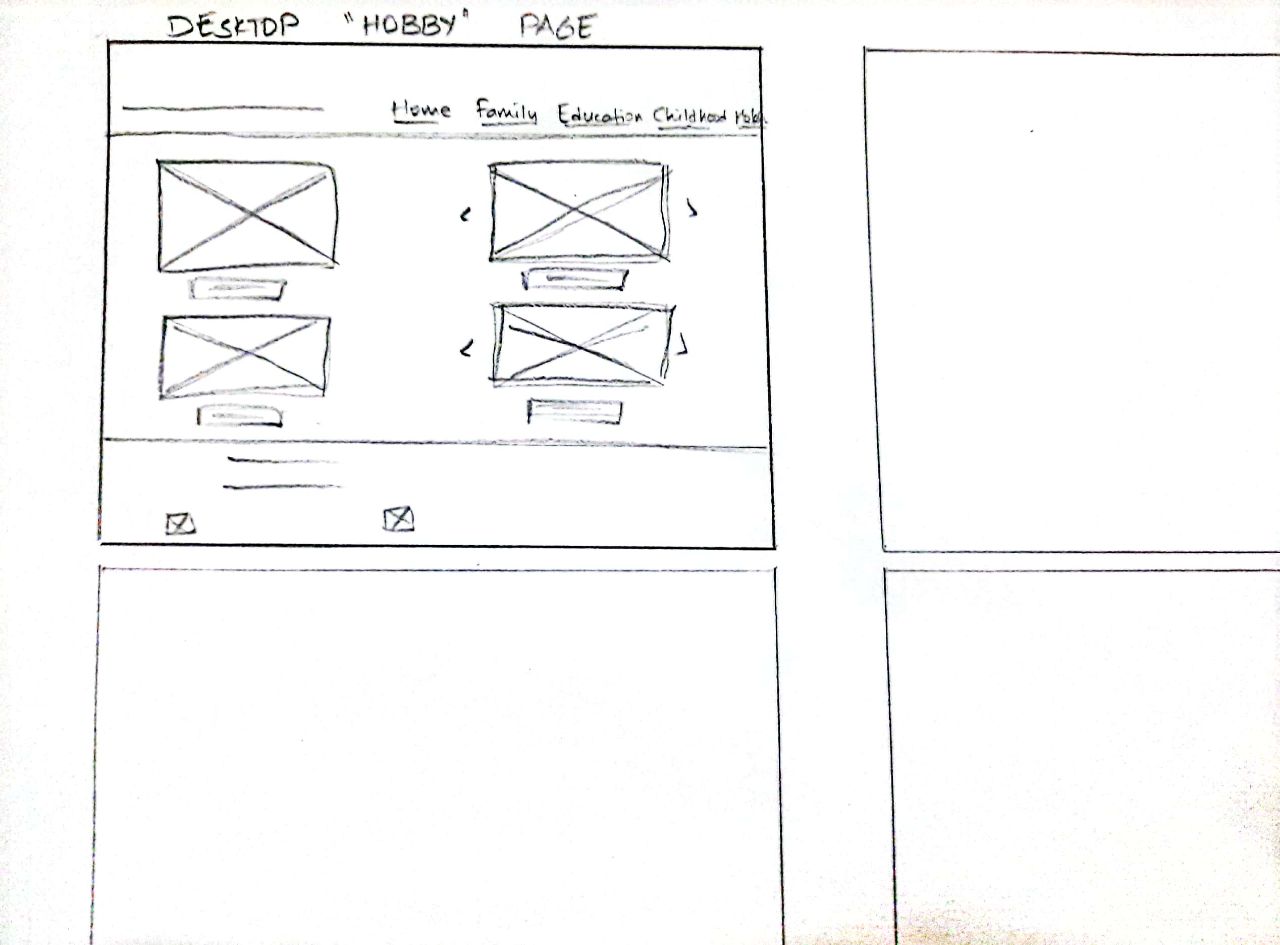 DESKTOP "HOBBY" PAGE
Home Family Education Childhood